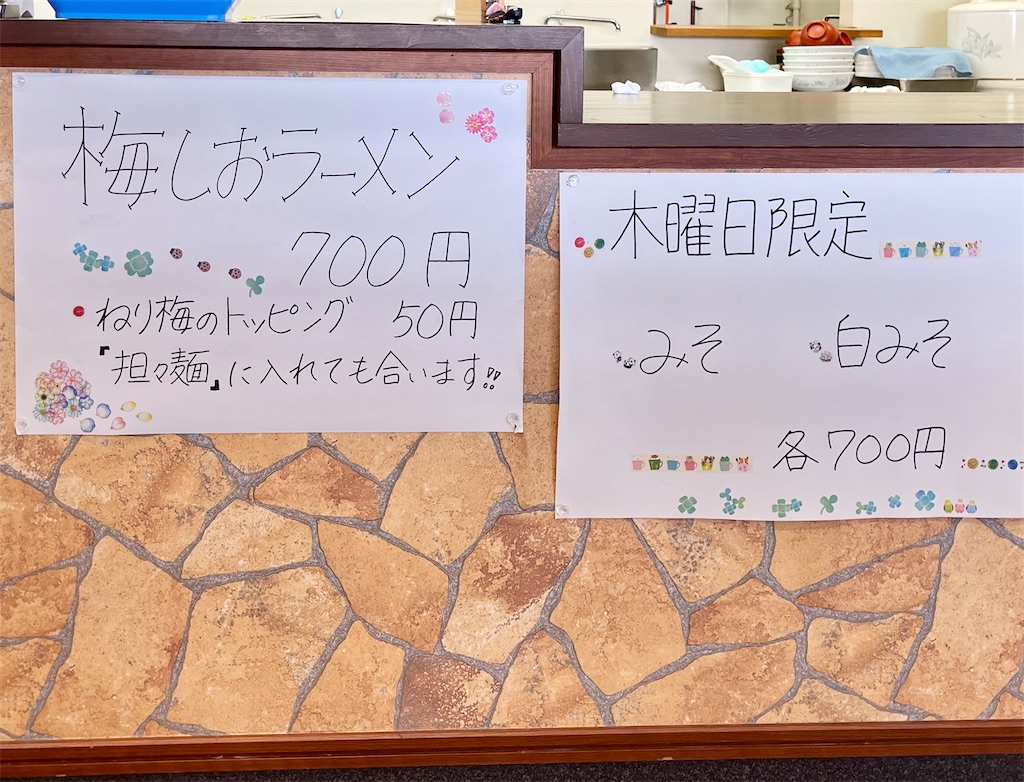 梅しおラーメン
700円
ねり梅のトッピング 50円
『担々麺』に入れても合います!!
木曜日限定
みそ 白みそ
各700円